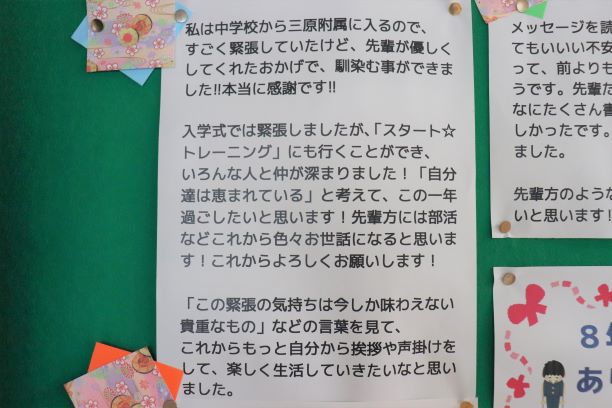 私は中学校から三原附属に入るので、
すごく緊張していたけど、先輩が優しく
してくれたおかげで、馴染む事ができま
した!!本当に感謝です!!
入学式では緊張しましたが、「スタート☆
トレーニング」にも行くことができ、
いろんな人と仲が深まりました！「自分
達は恵まれている」と考えて、この一年
過ごしたいと思います！先輩方には部活
などこれから色々お世話になると思いま
す！これからよろしくお願いします！
「この緊張の気持ちは今しか味わえない
貴重なもの」などの言葉を見て、
これからもっと自分から挨拶や声掛けを
して、楽しく生活していきたいなと思い
ました。
メッセージを読
てもいいい不安
って、前よりも
うです。先輩た
なにたくさん書
しかったです。
ました。
先輩方のような
いと思います！
８年
あり